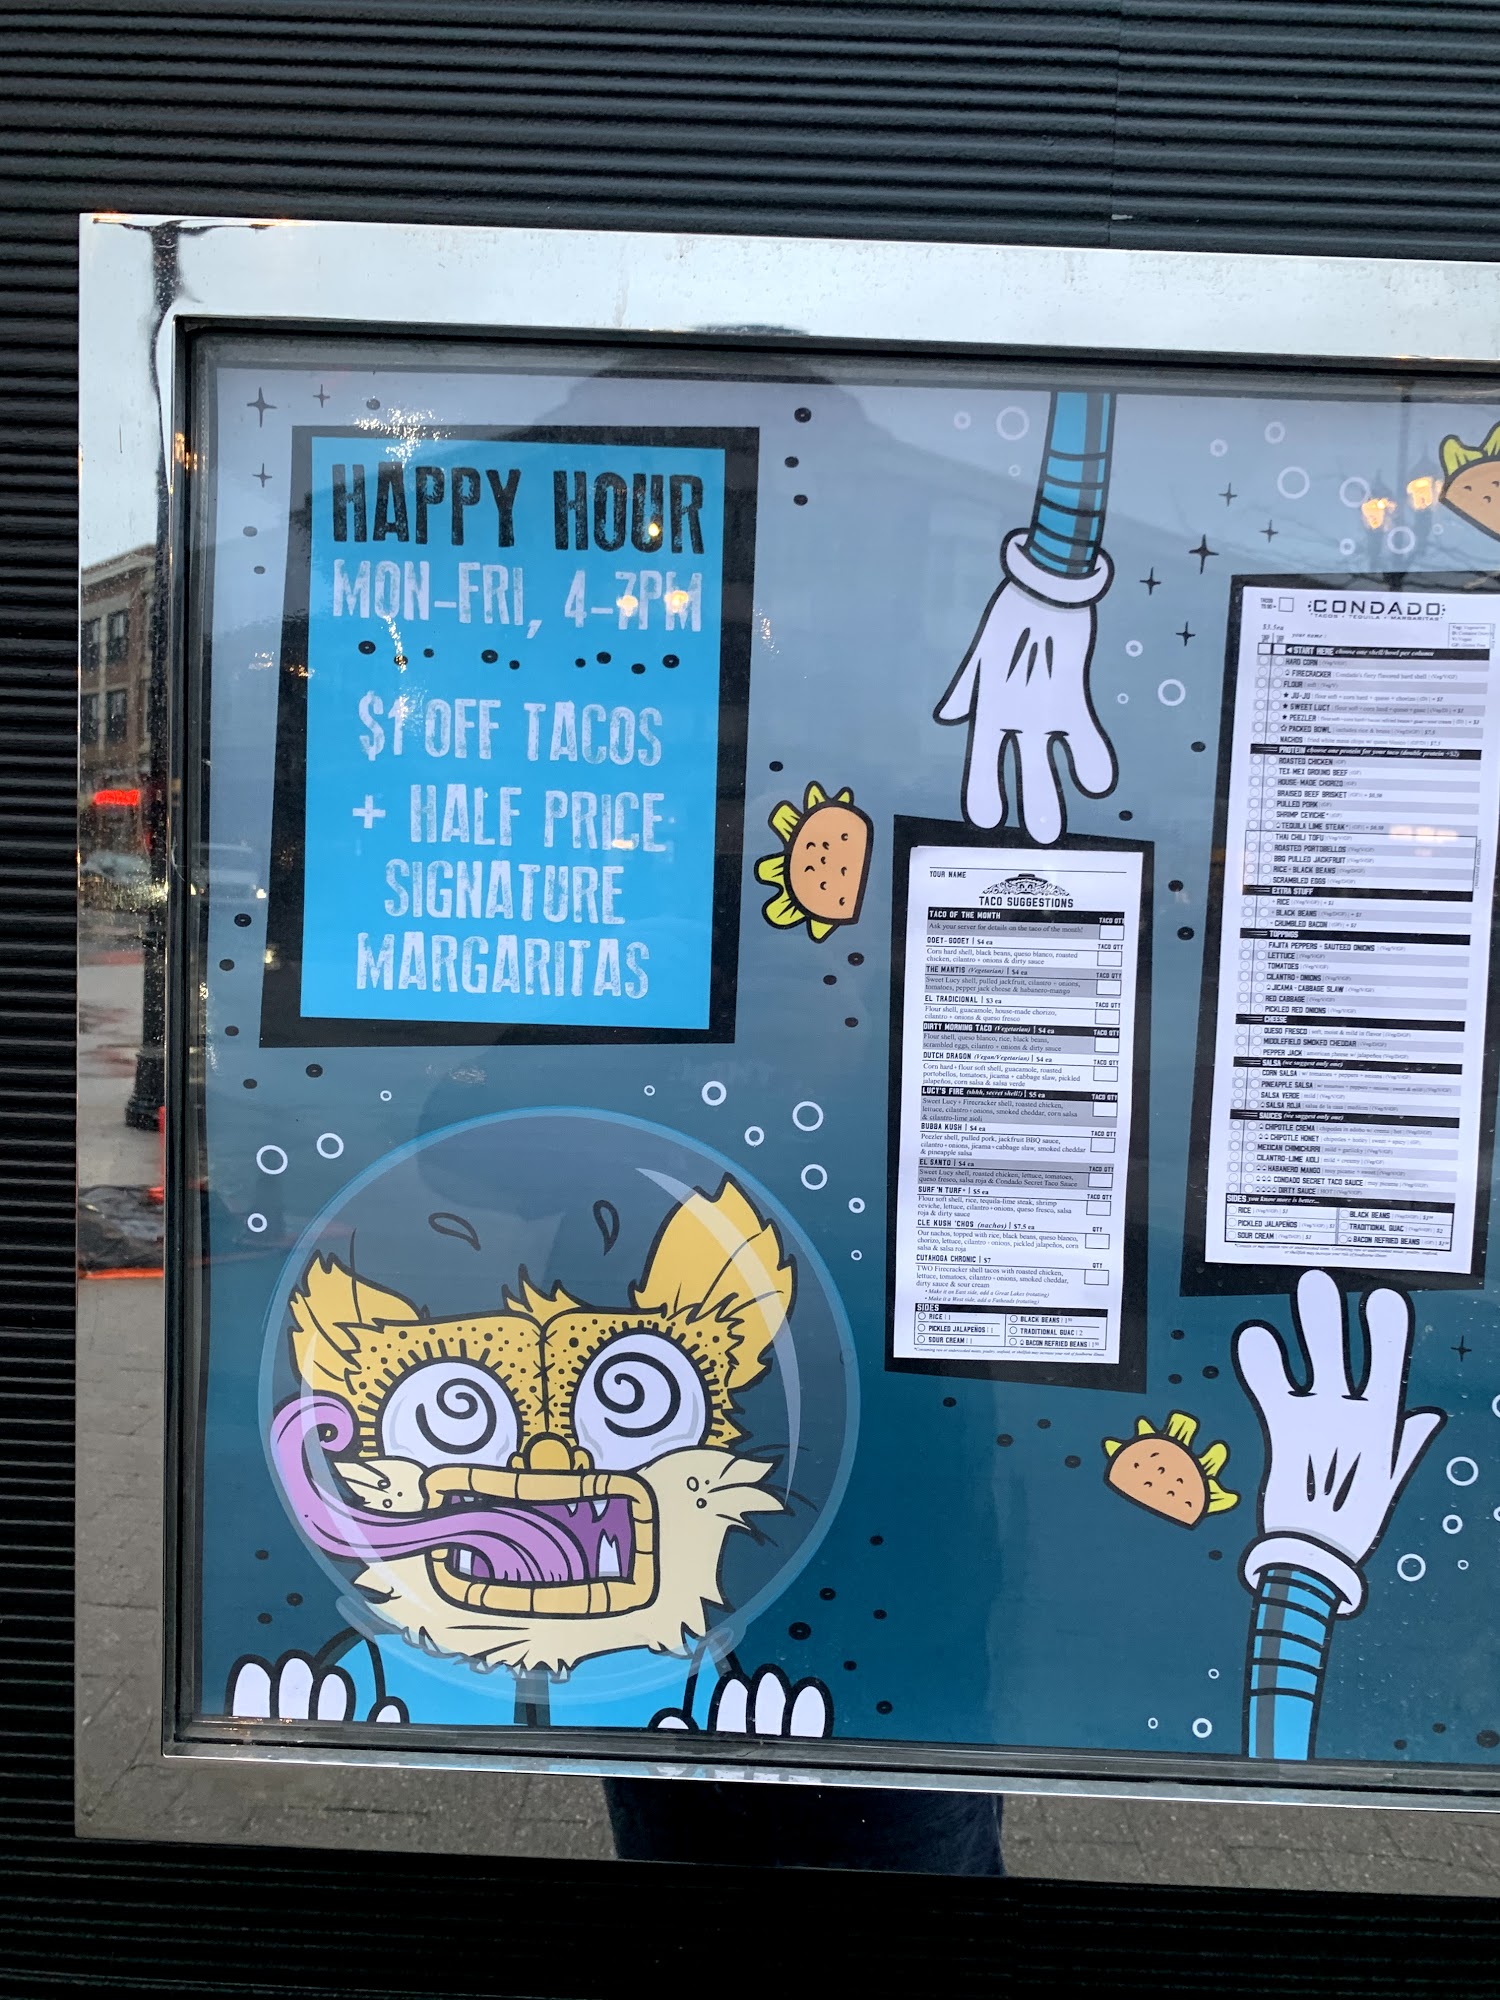 HAPPY HOUR
MON-FRI, 4-7PM
$1 OFF TACOS
+ HALF PRICE
SIGNATURE
MARGARITAS
YOUR NAME
TACO SUGGESTIONS
TACO OF THE MONTH TACO QTY
Ask your server for details on the taco of the month!
OOEY-GOOEY | $4 ea TACO QTY
Corn hard shell, black beans, queso blanco, roasted
chicken, cilantro + onions & dirty sauce
THE MANTIS (Vegetarian) | $4 ea TACO QTY
Sweet Lucy shell, pulled jackfruit, cilantro + onions,
tomatoes, pepper jack cheese & habanero-mango
EL TRADICIONAL | $3 ea TACO QTY
Flour shell, guacamole, house-made chorizo,
cilantro + onions & queso fresco
DIRTY MORNING TACO (Vegetarian) | $4 ea TACO QTY
Flour shell, queso blanco, rice, black beans,
scrambled eggs, cilantro + onions & dirty sauce
DUTCH DRAGON (Vegan/Vegetarian) | $4 ea TACO QTY
Corn hard + flour soft shell, guacamole, roasted
portobellos, tomatoes, jicama + cabbage slaw, pickled
jalapeños, corn salsa & salsa verde
LUCY'S FIRE (shhh, secret shell!) | $5 ea TACO QTY
Sweet Lucy + Firecracker shell, roasted chicken,
lettuce, cilantro + onions, smoked cheddar, corn salsa
& cilantro-lime aioli
BUBBA KUSH | $4 ea TACO QTY
Peezler shell, pulled pork, jackfruit BBQ sauce,
cilantro + onions, jicama + cabbage slaw, smoked cheddar
& pineapple salsa
EL SANTO | $4 ea TACO QTY
Sweet Lucy shell, roasted chicken, lettuce, tomatoes,
queso fresco, salsa roja & Condado Secret Taco Sauce
SURF 'N TURF* | $5 ea TACO QTY
Flour soft shell, rice, tequila-lime steak, shrimp
ceviche, lettuce, cilantro + onions, queso fresco, salsa
roja & dirty sauce
CLE KUSH 'CHOS (nachos) | $7.5 ea QTY
Our nachos, topped with rice, black beans, queso blanco,
chorizo, lettuce, cilantro + onions, pickled jalapeños, corn
salsa & salsa roja
CUYAHOGA CHRONIC | $7 QTY
TWO Firecracker shell tacos with roasted chicken,
lettuce, tomatoes, cilantro + onions, smoked cheddar,
dirty sauce & sour cream
• Make it an East side, add a Great Lakes (rotating)
• Make it a West side, add a Fatheads (rotating)
SIDES
RICE | 1 BLACK BEANS | 1
PICKLED JALAPEÑOS | 1 TRADITIONAL GUAC | 2
SOUR CREAM | 1 BACON REFRIED BEANS | 1
CONDADO
TACOS • TEQUILA • MARGARITAS
your name:
START HERE choose one shell/bowl per column
HARD CORN
FIRECRACKER
FLOUR
JU-JU
SWEET LUCY
PEEZLER
PACKED BOWL
NACHOS
PROTEIN choose one protein for your taco (double protein +$2)
ROASTED CHICKEN
TEX MEX GROUND BEEF
HOUSE-MADE CHORIZO
BRAISED BEEF BRISKET
PULLED PORK
SHRIMP CEVICHE*
TEQUILA LIME STEAK*
THAI CHILI TOFU
ROASTED PORTOBELLOS
BBQ PULLED JACKFRUIT
RICE + BLACK BEANS
SCRAMBLED EGGS
EXTRA STUFF
+ RICE
+ BLACK BEANS
+ CRUMBLED BACON
TOPPINGS
FAJITA PEPPERS + SAUTEED ONIONS
LETTUCE
TOMATOES
CILANTRO + ONIONS
JICAMA + CABBAGE SLAW
RED CABBAGE
PICKLED RED ONIONS
CHEESE
QUESO FRESCO
MIDDLEFIELD SMOKED CHEDDAR
PEPPER JACK
SALSA (we suggest only one)
CORN SALSA
PINEAPPLE SALSA
SALSA VERDE
SALSA ROJA
SAUCES (we suggest only one)
CHIPOTLE CREMA
CHIPOTLE HONEY
MEXICAN CHIMICHURRI
CILANTRO-LIME AIOLI
HABANERO MANGO
CONDADO SECRET TACO SAUCE
DIRTY SAUCE
SIDES you know more is better...
RICE BLACK BEANS
PICKLED JALAPEÑOS TRADITIONAL GUAC
SOUR CREAM BACON REFRIED BEANS